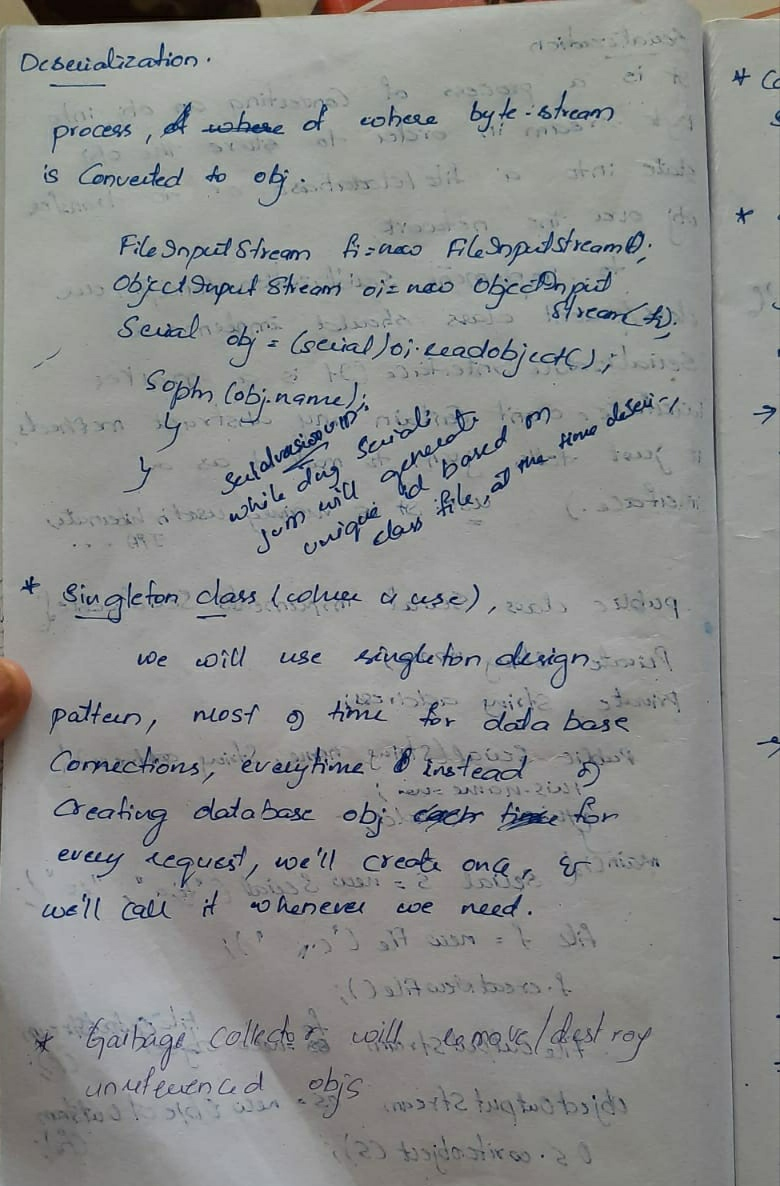 Deserialization.
process, of where byte-stream
is Converted to obj.
FileInputStream fi = new FileInputStream();
ObjectInputStream oi = new ObjectInput
Stream(fi);
Serial obj = (serial) oi.readobject();
Sopln (obj.name);
}
}
while doing Seriali
Jvm will generate
unique id based on
class file, at the time deseri-
* Singleton class (where u use),
we will use singleton design
pattern, most of time for data base
Connections, everytime instead of
Creating database obj for
every request, we'll create one, &
we'll call it whenever we need.
* Garbage collector will remove/destroy
unreferenced objs
* Co
*